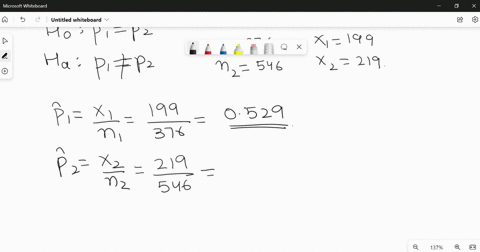 Microsoft Whiteboard
Untitled whiteboard
H₀: p₁ = p₂
Hₐ: p₁ ≠ p₂
n₂ = 546
x₁ = 199
x₂ = 219.
p̂₁ = x₁/n₁ = 199/376 = 0.529
p̂₂ = x₂/n₂ = 219/546 =
137%